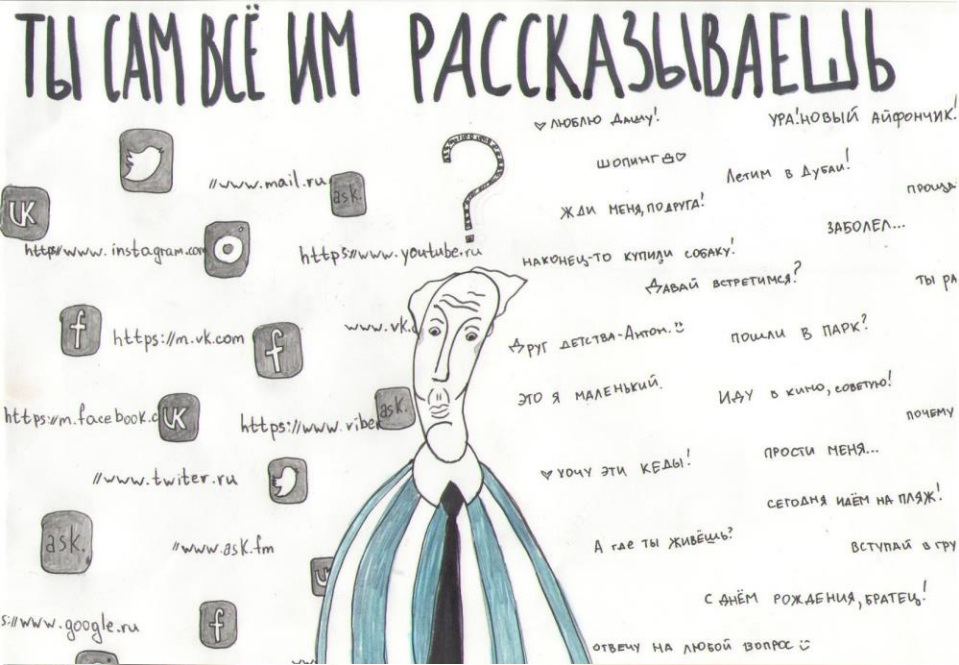 ТЫ САМ ВСЁ ИМ РАССКАЗЫВАЕШЬ
?
//www.mail.ru
ask.
VK
https://www.instagram.com
https://www.youtube.ru
f
https://m.vk.com
f
www.vk.c
https://m.facebook.c
VK
https://www.viber
ask.
//www.twiter.ru
ask.
//www.ask.fm
s://www.google.ru
f
ww
♡ ЛЮБЛЮ ДАШУ!
УРА! НОВЫЙ АЙФОНЧИК!
ШОПИНГ
ЛЕТИМ В ДУБАИ!
ПРОЩА
ЖДИ МЕНЯ, ПОДРУГА!
ЗАБОЛЕЛ...
НАКОНЕЦ-ТО КУПИЛИ СОБАКУ!
ДАВАЙ ВСТРЕТИМСЯ?
ТЫ РА
ДРУГ ДЕТСТВА-АНТОН.
ПОШЛИ В ПАРК?
ЭТО Я МАЛЕНЬКИЙ.
ИДУ В КИНО, СОВЕТУЮ!
ПОЧЕМУ
♡ ХОЧУ ЭТИ КЕДЫ!
ПРОСТИ МЕНЯ...
СЕГОДНЯ ИДЁМ НА ПЛЯЖ!
А ГДЕ ТЫ ЖИВЁШЬ?
ВСТУПАЙ В ГРУ
С ДНЁМ РОЖДЕНИЯ, БРАТЕЦ!
ОТВЕЧУ НА ЛЮБОЙ ВОПРОС